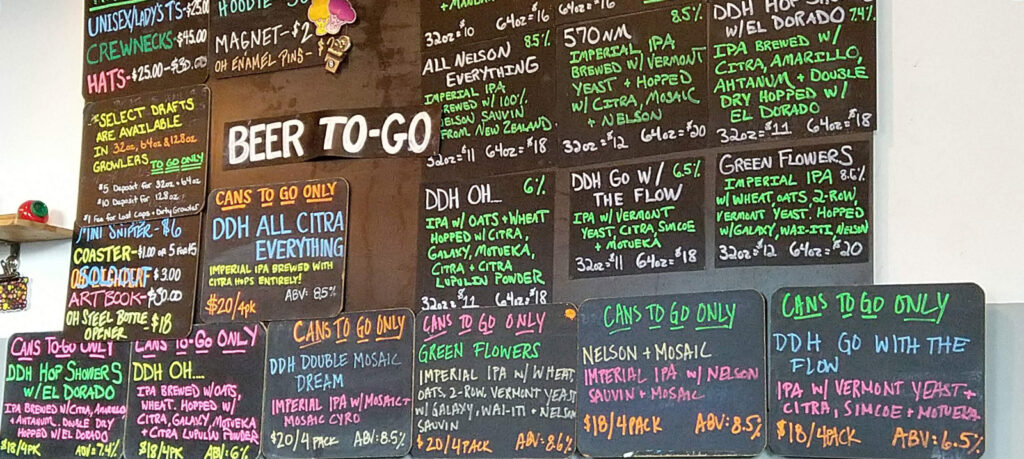 UNISEX/LADY'S T'S-$25.00
CREWNECKS-$45.00
HATS-$25.00-$30.00
HOODIE
MAGNET-$2
OH ENAMEL PINS-
*SELECT DRAFTS
ARE AVAILABLE
IN 32oz, 64oz & 128oz
GROWLERS TO GO ONLY
$5 Deposit for 32oz + 64oz
$10 Deposit for 128oz
MINI SNIFTER-$6
COASTER-$1.00 or 5 for $
$3.00
ART BOOK-$30.00
OH STEEL BOTTLE $18
OPENER
BEER TO-GO
32oz=$10 64oz=$16
ALL NELSON 8.5%
EVERYTHING
IMPERIAL IPA
BREWED W/ 100%
NELSON SAUVIN
FROM NEW ZEALAND.
32oz=$11 64oz=$18
64oz=$16
570NM 8.5%
IMPERIAL IPA
BREWED W/ VERMONT
YEAST + HOPPED
W/ CITRA, MOSAIC
+ NELSON
32oz=$12 64oz=$20
DDH HOP SHOWERS
W/ EL DORADO 7.4%
IPA BREWED W/
CITRA, AMARILLO,
AHTANUM + DOUBLE
DRY HOPPED W/
EL DORADO
32oz=$11 64oz=$18
DDH OH... 6%
IPA W/ OATS + WHEAT
HOPPED W/ CITRA,
GALAXY, MOTUEKA,
CITRA + CITRA
LUPULIN POWDER
32oz=$11 64oz=$18
DDH GO W/ 6.5%
THE FLOW
IPA W/ VERMONT
YEAST, CITRA, SIMCOE
+ MOTUEKA
32oz=$11 64oz=$18
GREEN FLOWERS
IMPERIAL IPA 8.6%
W/ WHEAT, OATS, 2-ROW,
VERMONT YEAST. HOPPED
W/ GALAXY, WAI-ITI, NELSON
32oz=$12 64oz=$20
CANS TO GO ONLY
DDH ALL CITRA
EVERYTHING
IMPERIAL IPA BREWED WITH
CITRA HOPS ENTIRELY!
$20/4pk ABV: 8.5%
CANS TO GO ONLY
DDH HOP SHOWERS
W/ EL DORADO
IPA BREWED W/ CITRA, AMARILLO
+ AHTANUM. DOUBLE DRY
HOPPED W/ EL DORADO
$18/4PK ABV=7.4%
CANS TO-GO ONLY
DDH OH....
IPA BREWED W/ OATS,
WHEAT. HOPPED W/
CITRA, GALAXY, MOTUEKA
+ CITRA LUPULIN POWDER
$18/4PK ABV: 6%
CANS TO GO ONLY
DDH DOUBLE MOSAIC
DREAM
IMPERIAL IPA W/ MOSAIC +
MOSAIC CYRO
$20/4 PACK ABV: 8.5%
CANS TO GO ONLY
GREEN FLOWERS
IMPERIAL IPA W/ WHEAT,
OATS, 2-ROW, VERMONT YEAST
W/ GALAXY, WAI-ITI + NELSON
SAUVIN
$20/4PACK ABV: 8.6%
CANS TO GO ONLY
NELSON + MOSAIC
IMPERIAL IPA W/ NELSON
SAUVIN + MOSAIC
$18/4PACK ABV: 8.5%
CANS TO GO ONLY
DDH GO WITH THE
FLOW
IPA W/ VERMONT YEAST +
CITRA, SIMCOE + MOTUEKA
$18/4PACK ABV: 6.5%